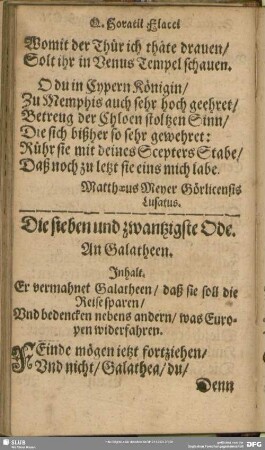 Q. Horatii Flacci
Womit der Thür ich thäte drauen/
Solt ihr in Venus Tempel schauen.
O du in Cypern Königin/
Zu Memphis auch sehr hoch geehret/
Betreug der Chloen stoltzen Sinn/
Die sich bißher so sehr gewehret:
Rühr sie mit deines Scepters Stabe/
Daß noch zu letzt sie eins mich labe.
Matthæus Meyer Görlicensis
Lusatus.
Die sieben und zwantzigste Ode.
An Galatheen.
Inhalt.
Er vermahnet Galatheen/ daß sie soll die
Reise sparen/
Vnd bedencken nebens andern/ was Euro-
pen widerfahren.
FEinde mögen ietzt fortziehen/
Vnd nicht/ Galathea/ du/
Denn
SLUB
DFG